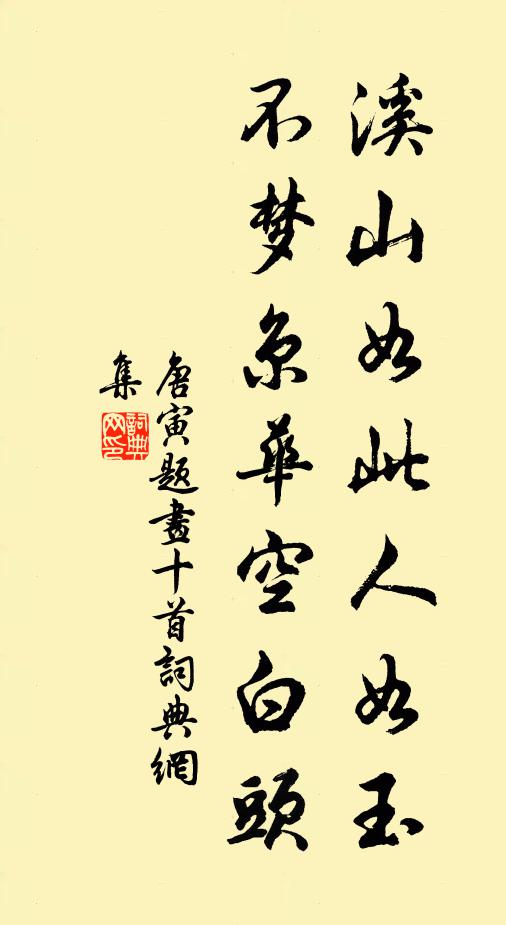 溪山如此人如玉
不梦京華空白頭
唐寅題畫十首詞典網
集
詞典
网印